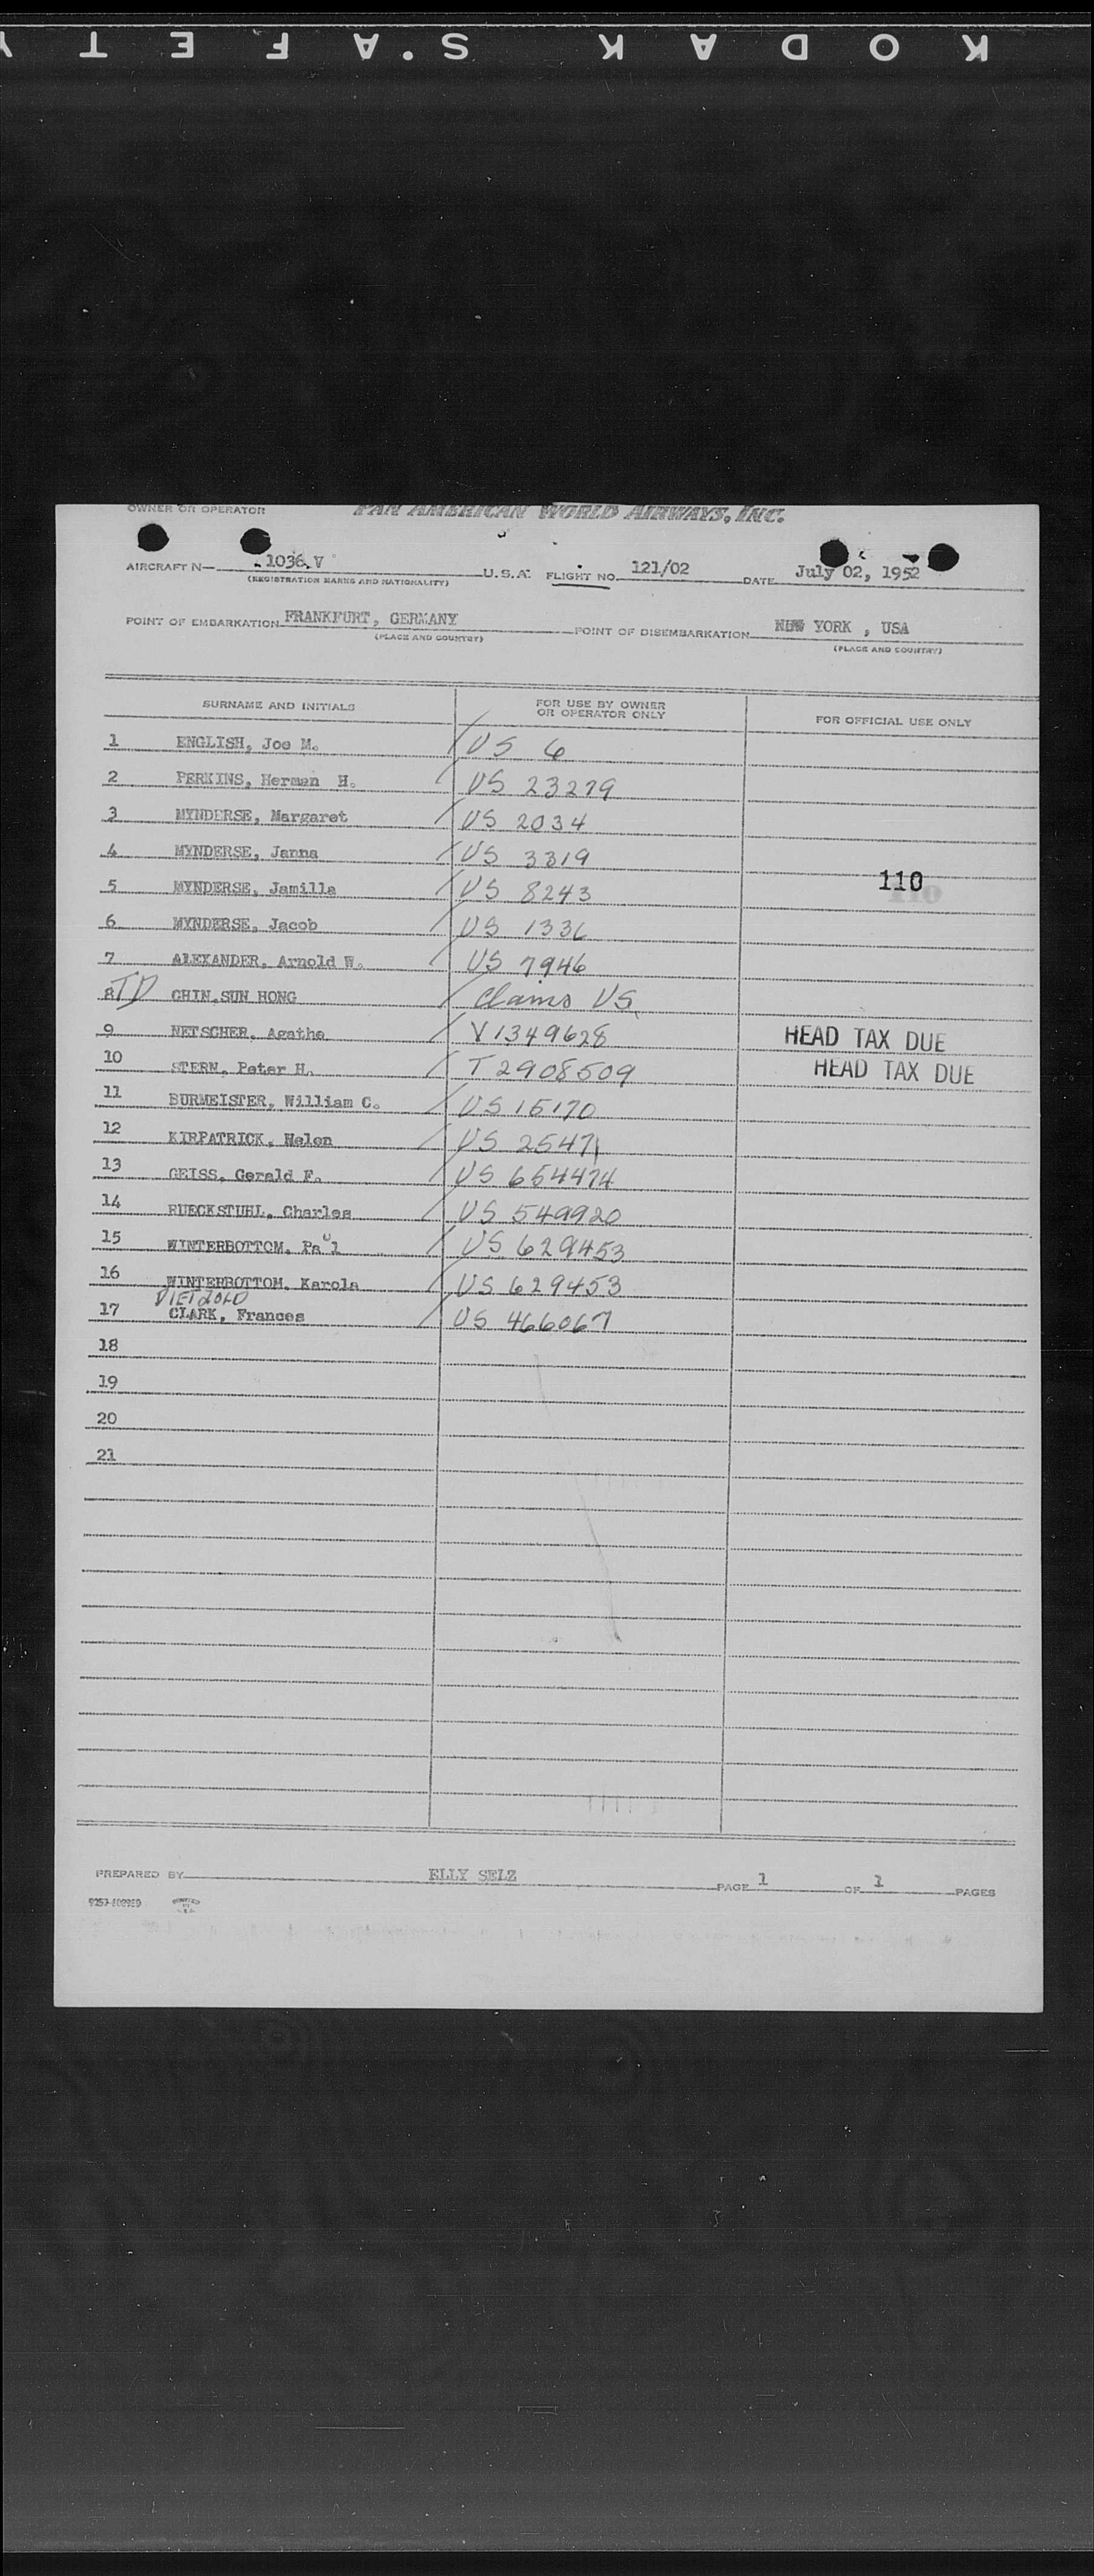 KODAK S.A F E T Y
OWNER OR OPERATOR PAN AMERICAN WORLD AIRWAYS, INC.
AIRCRAFT N— 1036 V U.S.A. FLIGHT NO. 121/02 DATE July 02, 1952
(REGISTRATION MARKS AND NATIONALITY)
POINT OF EMBARKATION FRANKFURT, GERMANY POINT OF DISEMBARKATION NEW YORK , USA
(PLACE AND COUNTRY) (PLACE AND COUNTRY)
SURNAME AND INITIALS FOR USE BY OWNER OR OPERATOR ONLY FOR OFFICIAL USE ONLY
1 ENGLISH, Joe M. / US 6
2 PERKINS, Herman H. / US 23279
3 MYNDERSE, Margaret / US 2034
4 MYNDERSE, Janna / US 3319
5 MYNDERSE, Jamilla / US 8243 110
6 MYNDERSE, Jacob / US 1336
7 ALEXANDER, Arnold W. / US 7946
8 TD CHIN.SUN HONG / Claims US
9 NETSCHER, Agathe / V1349628 HEAD TAX DUE
10 STERN, Peter H. / T2908509 HEAD TAX DUE
11 BURMEISTER, William C. / US 15170
12 KIRPATRICK, Helen / US 25471
13 GEISS, Gerald F. / US 654474
14 RUECKSTUHL, Charles / US 549920
15 WINTERBOTTOM, Paul / US 629453
16 WINTERBOTTOM, Karola / US 629453
DIETZOLD
17 CLARK, Frances / US 466067
18
19
20
21
PREPARED BY ELLY SELZ PAGE 1 OF 1 PAGES